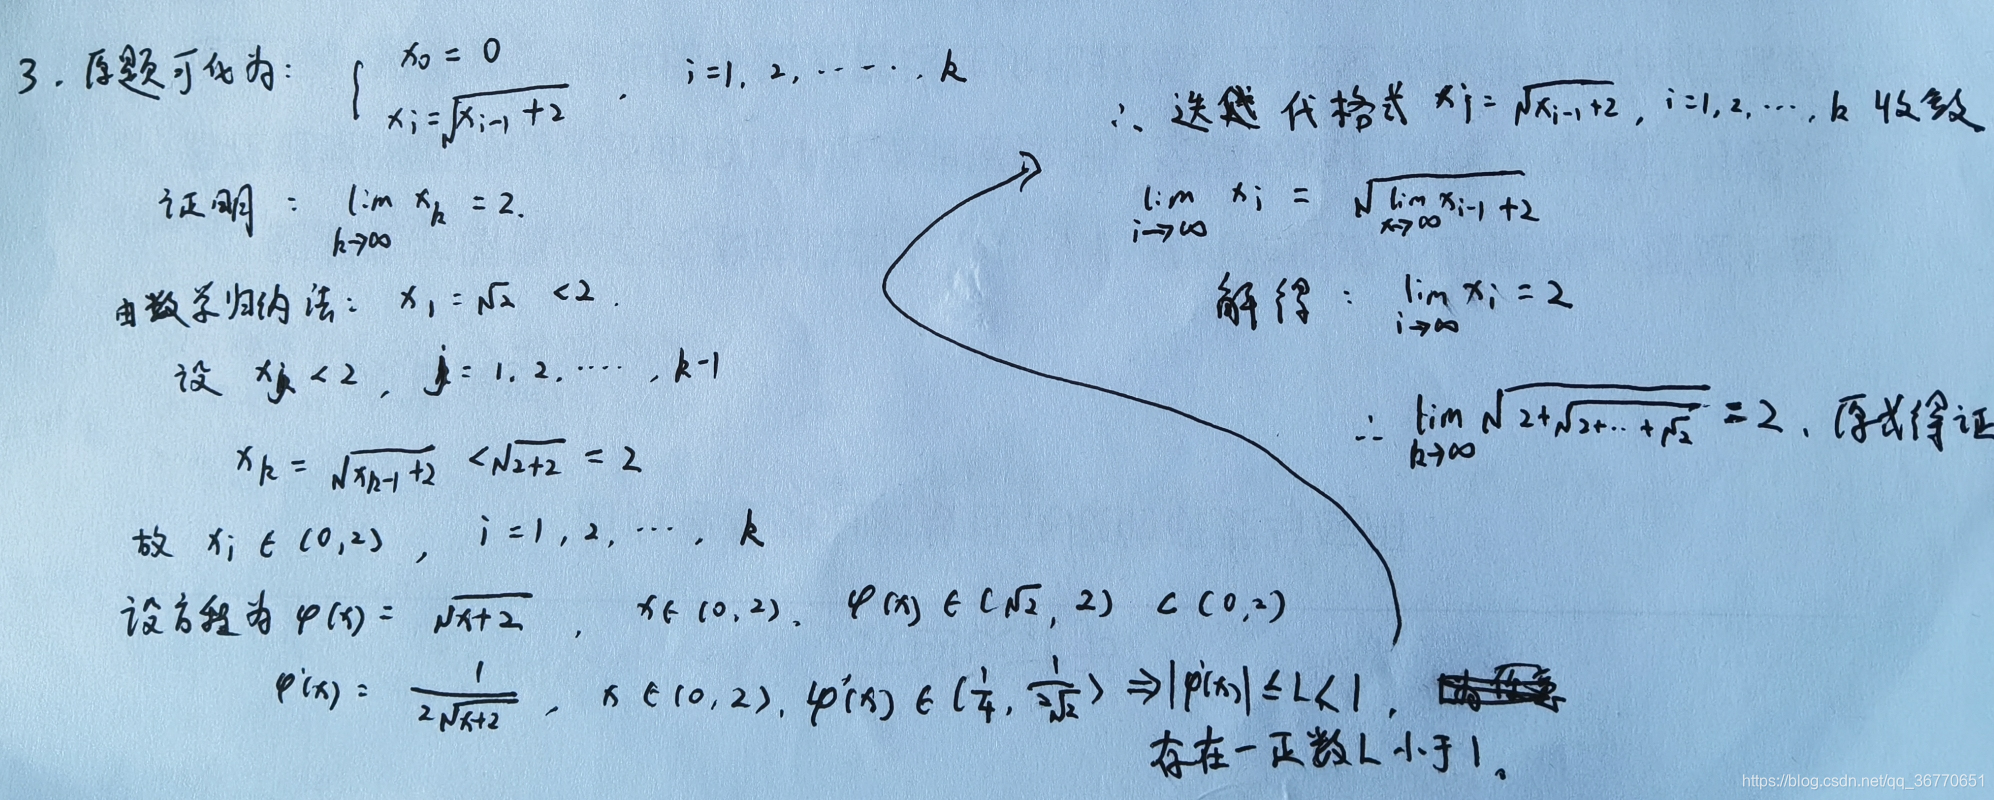 3. 原题可化为: { x₀ = 0
xᵢ = √(xᵢ₋₁ + 2) , i = 1, 2, ······, k
证明: lim_{k→∞} x_k = 2.
由数学归纳法: x₁ = √2 < 2.
设 xⱼ < 2, j = 1, 2, ·····, k-1
x_k = √(x_{k-1} + 2) < √(2+2) = 2
故 xᵢ ∈ (0, 2), i = 1, 2, ···, k
设方程为 φ(x) = √(x+2), x ∈ (0, 2), φ(x) ∈ (√2, 2) ⊂ (0, 2)
φ'(x) = 1/(2√(x+2)), x ∈ (0, 2), φ'(x) ∈ (1/4, 1/(2√2)) ⇒ |φ'(x)| ≤ L < 1,
存在一正数L小于1。
∴ 迭代格式 xᵢ = √(xᵢ₋₁ + 2), i = 1, 2, ···, k 收敛
lim_{i→∞} xᵢ = √(lim_{x→∞} xᵢ₋₁ + 2)
解得: lim_{i→∞} xᵢ = 2
∴ lim_{k→∞} √(2+√(2+···+√2)) = 2, 原式得证
https://blog.csdn.net/qq_36770651